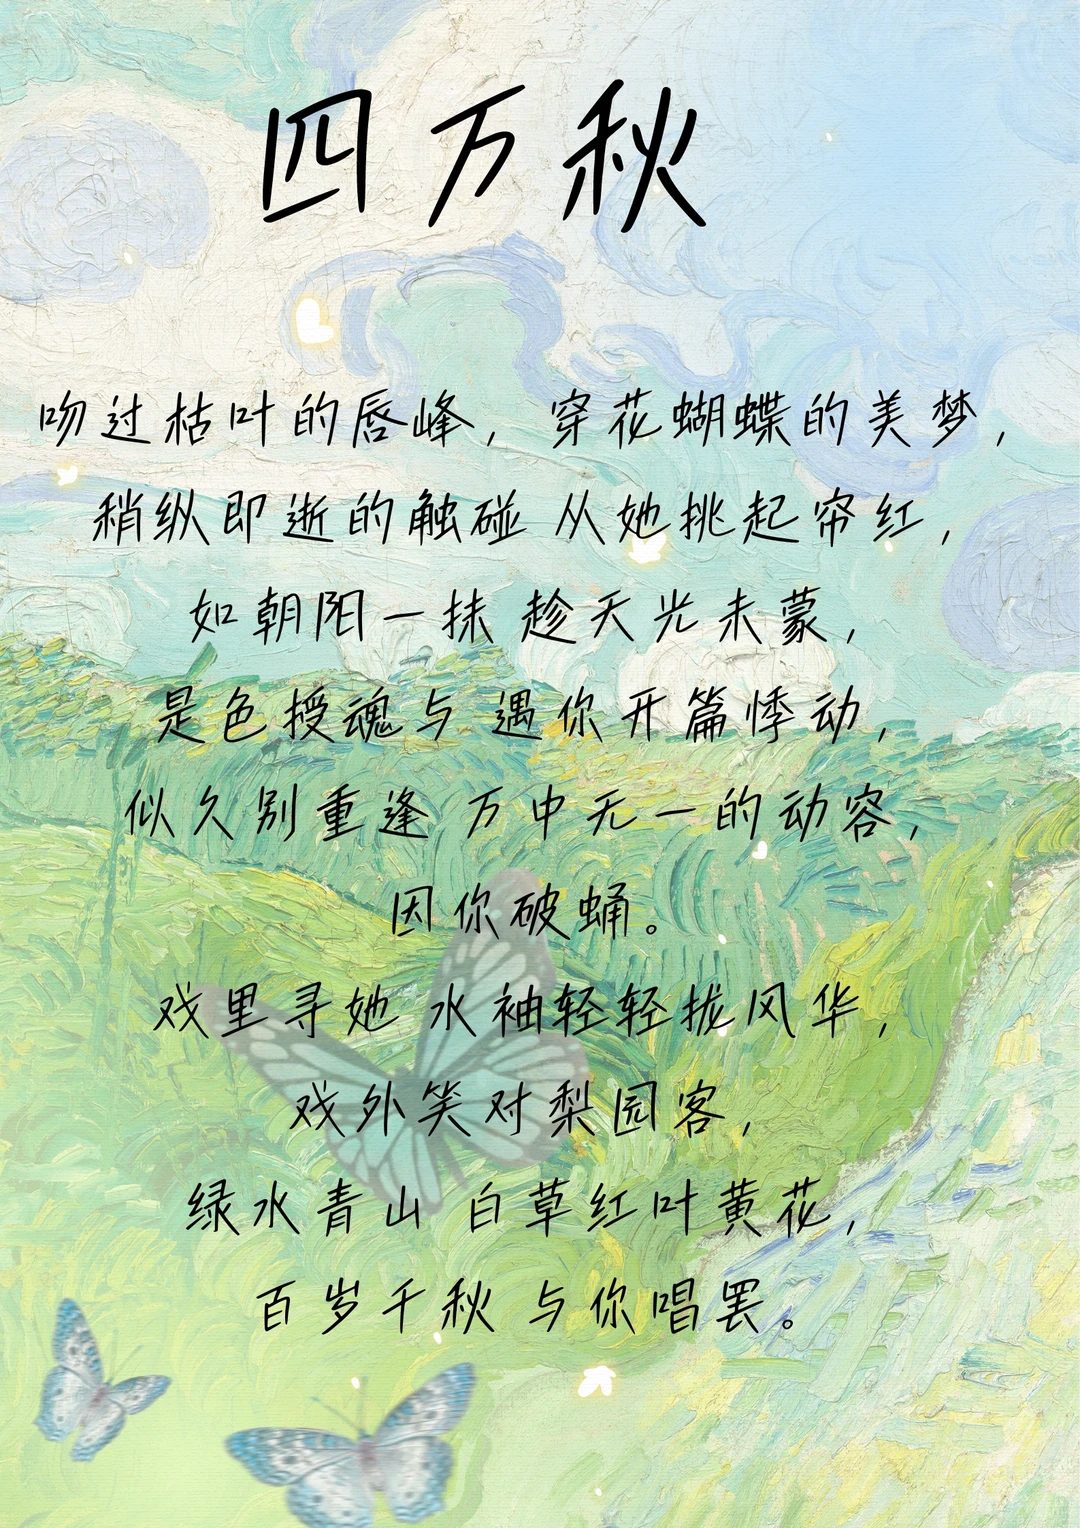 四万秋
吻过枯叶的唇峰，穿花蝴蝶的美梦，
稍纵即逝的触碰 从她挑起帘红，
如朝阳一抹 趁天光未蒙，
是色授魂与 遇你开篇悸动，
似久别重逢 万中无一的动容，
因你破蛹。
戏里寻她 水袖轻轻拢风华，
戏外笑对梨园客，
绿水青山 白草红叶黄花，
百岁千秋 与你唱罢。